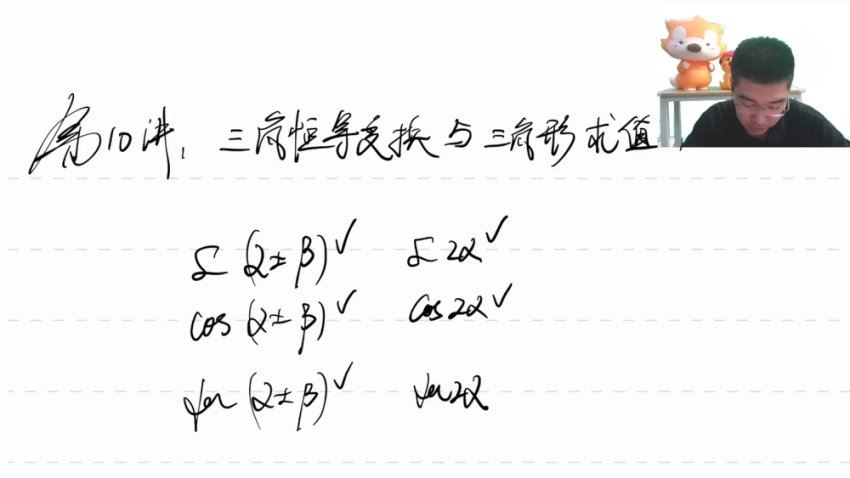 第10讲:三角恒等变换与三角形求值
sin(α±β)✓ sin2α✓
cos(α±β)✓ cos2α✓
tan(α±β)✓ tan2α